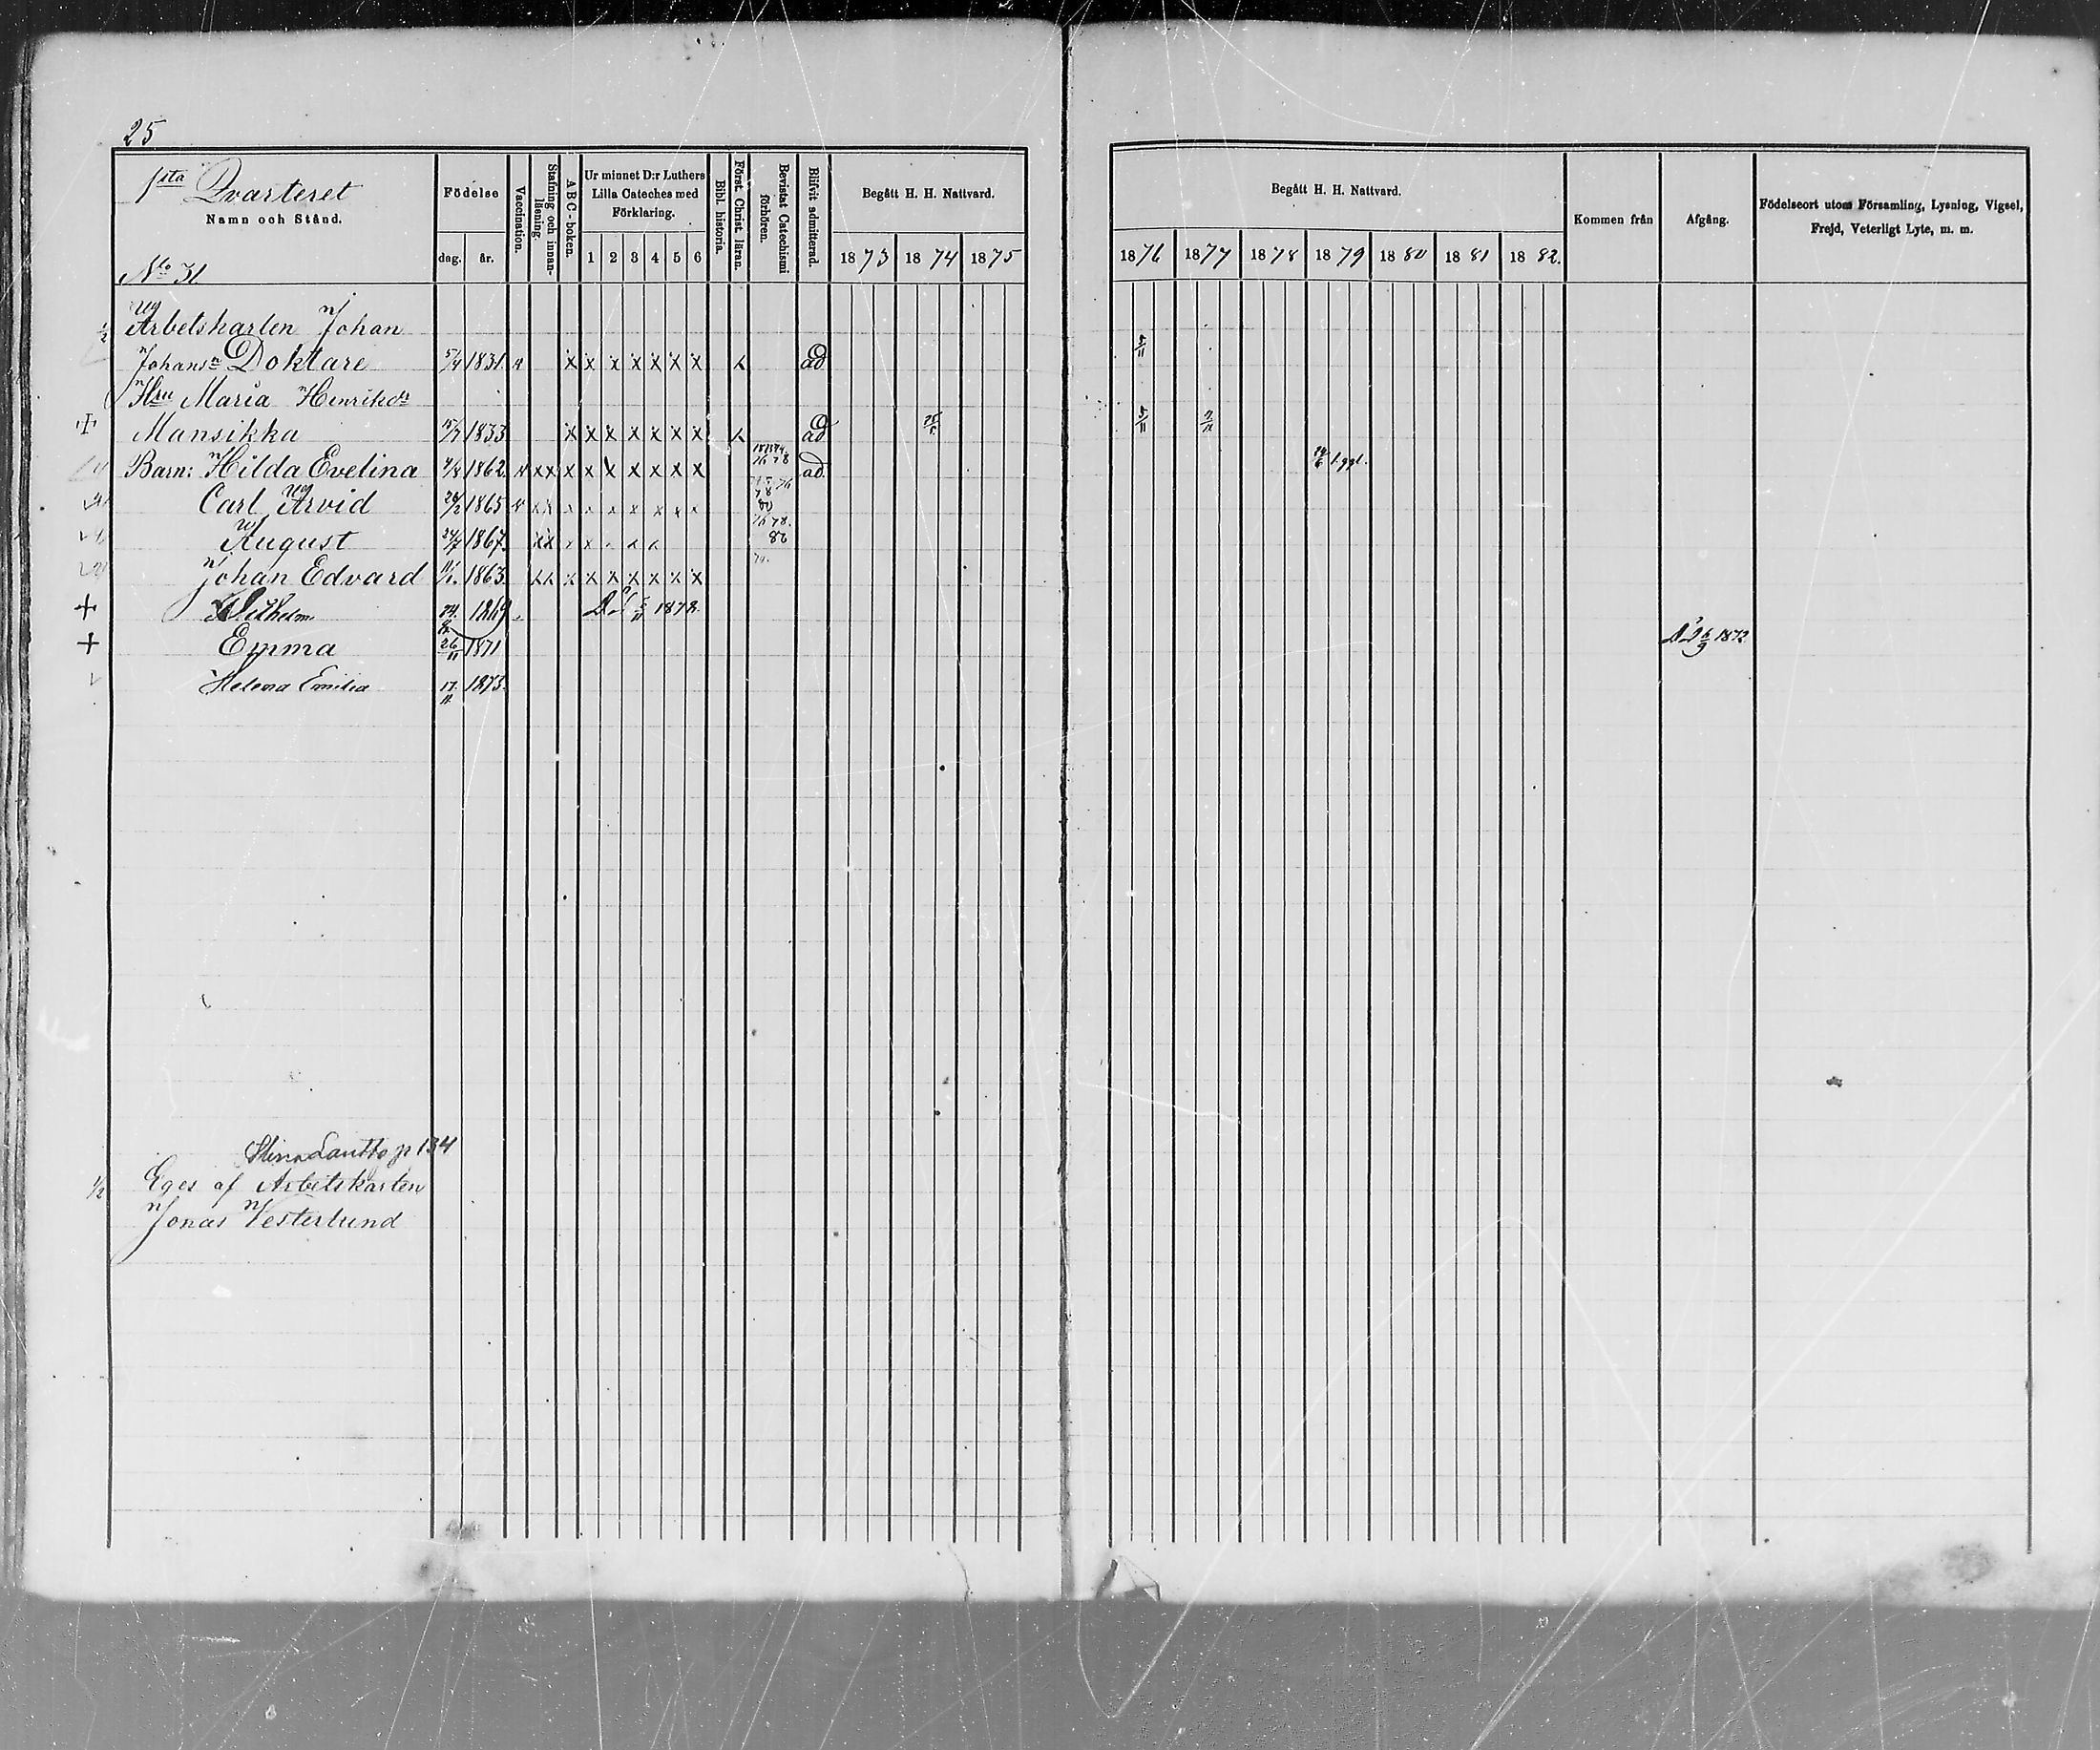 25
1sta Qvarteret
Namn och Stånd.
No 31.
Födelse
dag. år.
Vaccination.
Stafning och innanläsning.
ABC-boken.
Ur minnet D:r Luthers
Lilla Cateches med
Förklaring.
1 2 3 4 5 6
Bibl. historia.
Först. Christ. läran.
Bevistat Catechismi förhören.
Blifvit admitterad.
Begått H. H. Nattvard.
1873 1874 1875
Begått H. H. Nattvard.
1876 1877 1878 1879 1880 1881 1882.
Kommen från
Afgång.
Födelseort utom Församling, Lysning, Vigsel,
Frejd, Veterligt Lyte, m. m.
1/2 Arbetskarlen Johan
Johansn Doktare 5/4 1831 v x x x x x x x x ad 5/11
Hru Maria Henriksdr
Mansikka 15/7 1833 x x x x x x x x ad 25/5 5/11
Barn: Hilda Evelina 4/8 1862 v x x x x x x x x x 76 78 ad. 1.ggl.
Carl Arvid 26/2 1865 v x x x x x x x x x 75 76
78
80
August 24/7 1867 x x x x x x 76 78.
80
Johan Edvard 1863 x x x x x x x x x
+ Wilhelm 24. 1869 1872.
+ Emma 26/11 1871 6/9 1872
Helena Emilia 17/11 1873.
Stina Lautto p 134
1/2 Eges af Arbetskarlen
Jonas Vesterlund